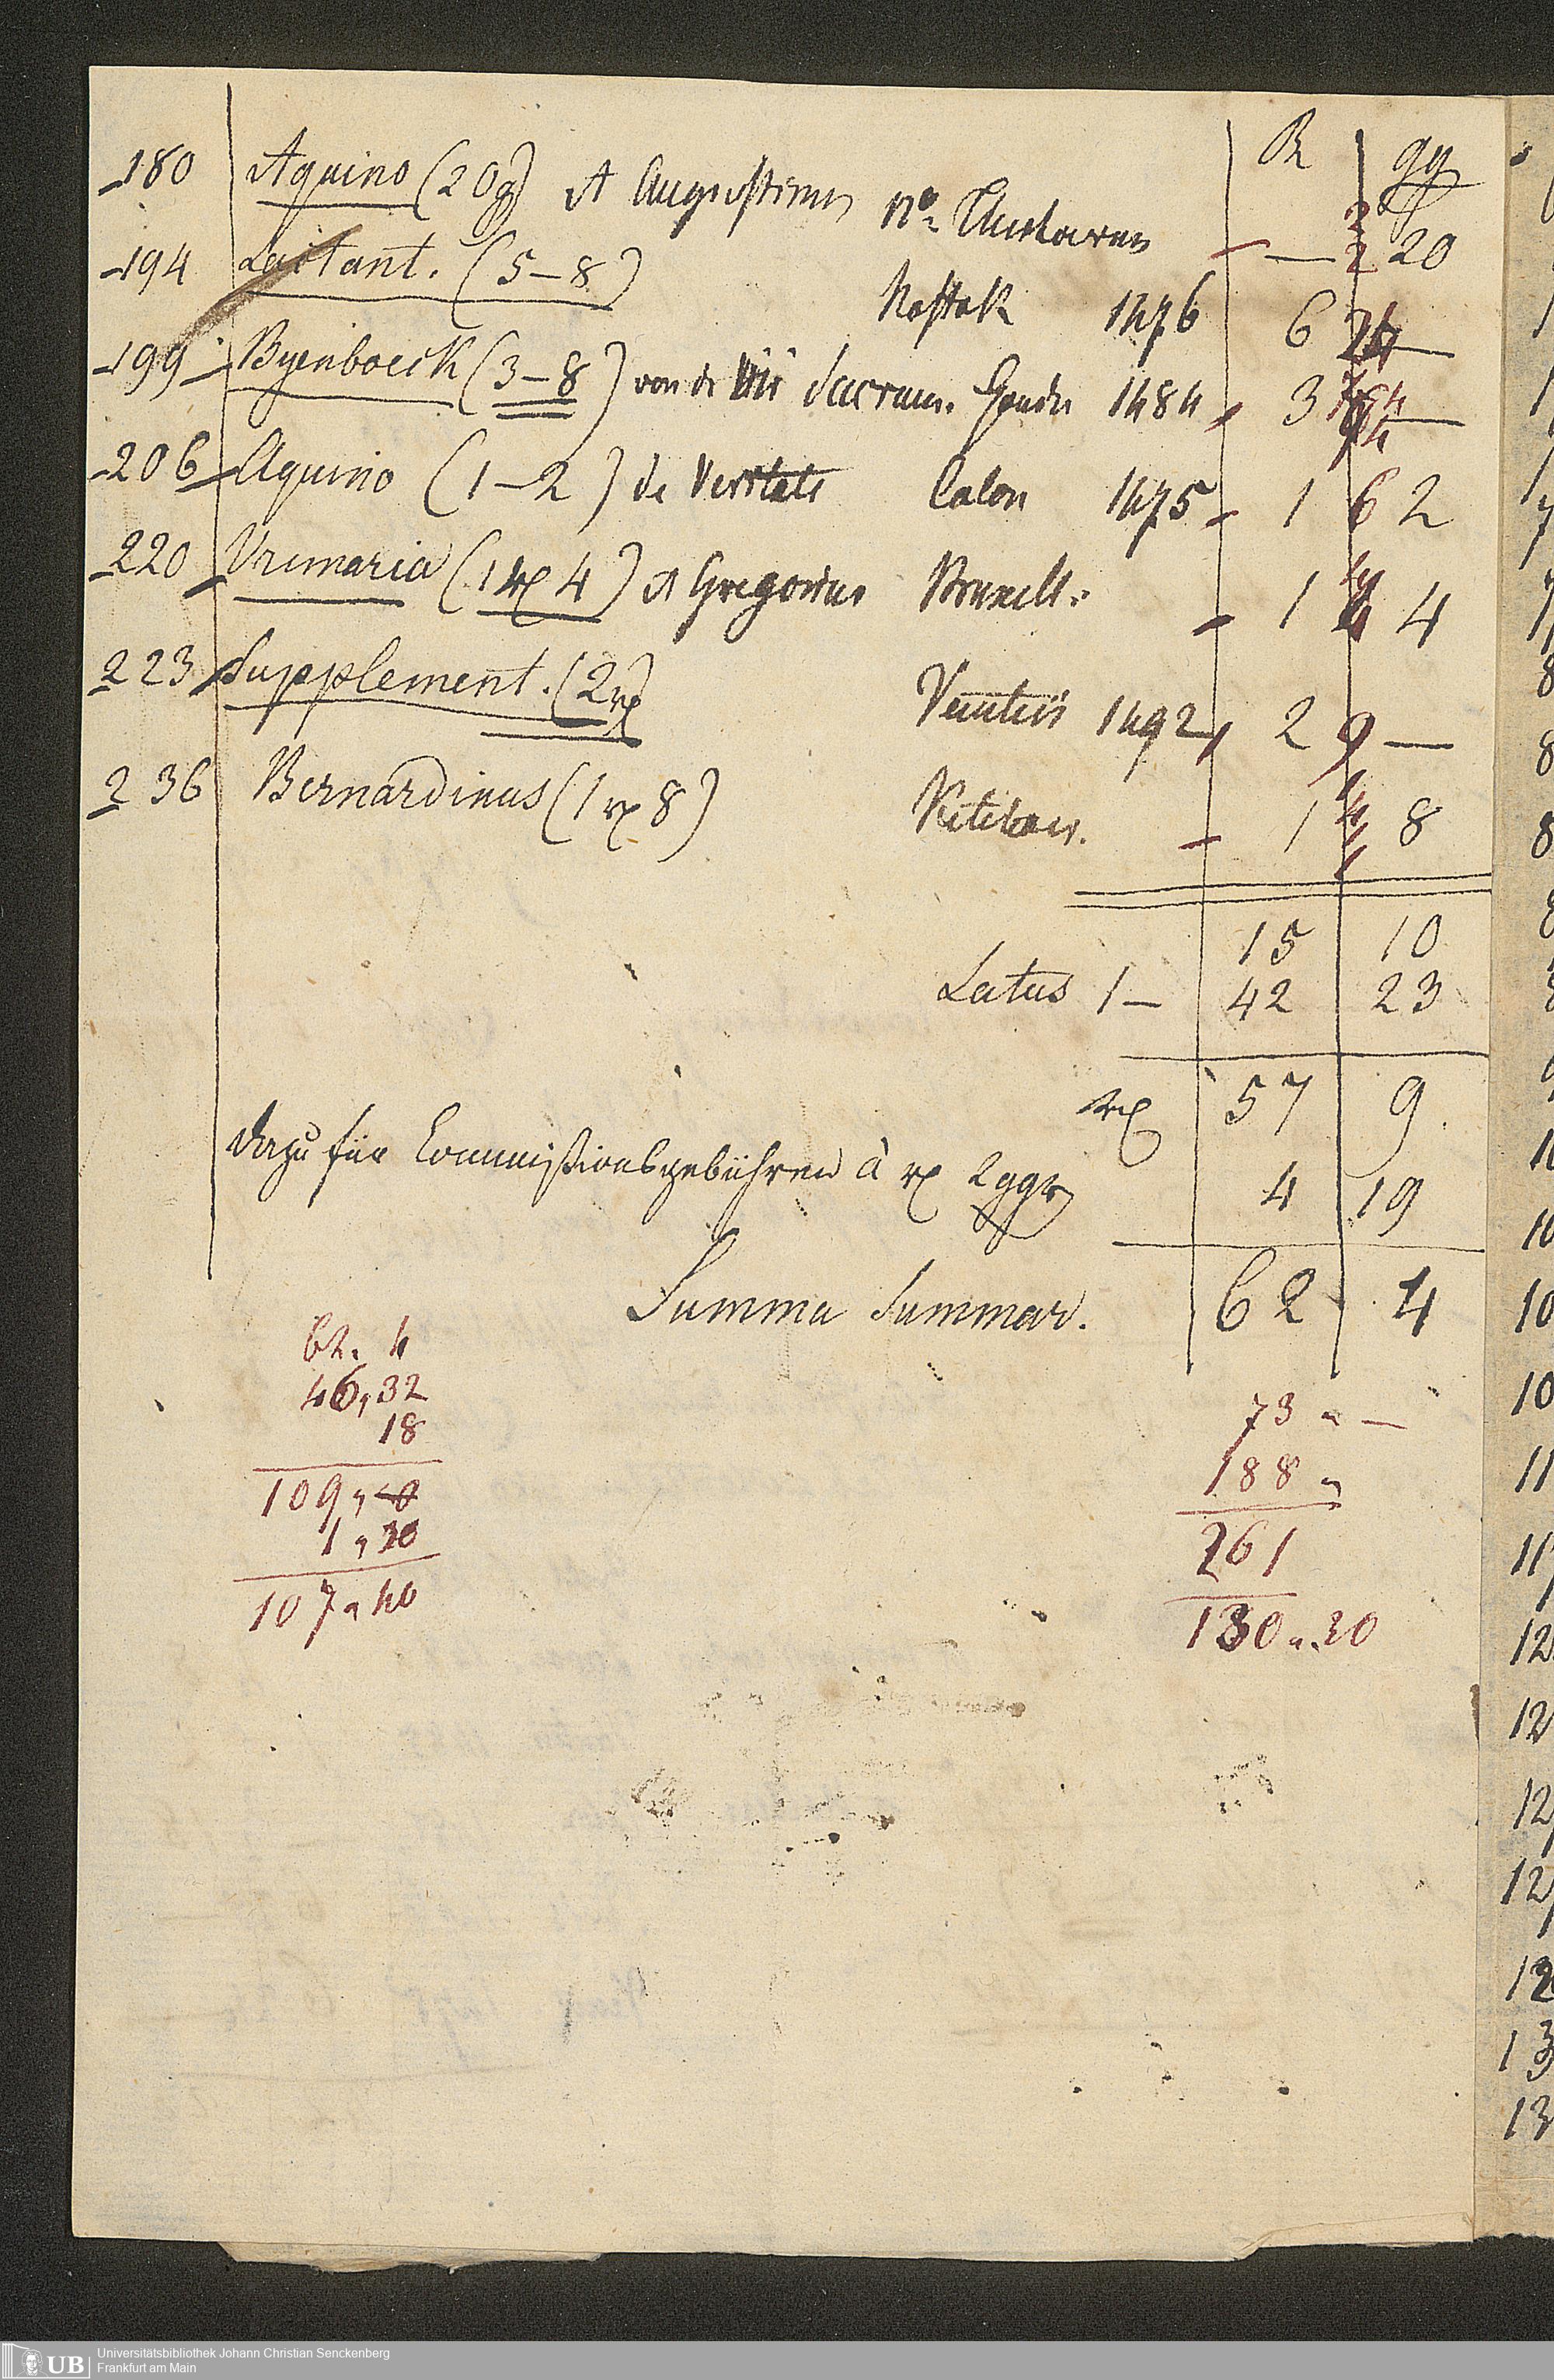 R gg
180 Aquino (20g) et Augustinus
— 20
194 Lactant. (5–8) Rostok 1476 6 —
199 Byenboeck (3–8) von de Sacram. Goude 1484 3 —
206 Aquino (1–2) de Veritate Colon 1475 1 2
220 Vrimaria (1 rx 4) et Gregorius Bruxell. 1 4
223 Supplement. (2 rx) Venetiis 1492 2 9 —
236 Bernardinus (1 rx 8) 1 8
15 10
Latus 1 – 42 23
rx 57 9.
Dazu für Commißionsgebühren à rx 2ggr 4 19
Summa Summar. 62 4
62. 4
46, 32
18
109,
1,
107, 40
73 " —
188 "
261
130 " 30
Universitätsbibliothek Johann Christian Senckenberg
Frankfurt am Main
UB